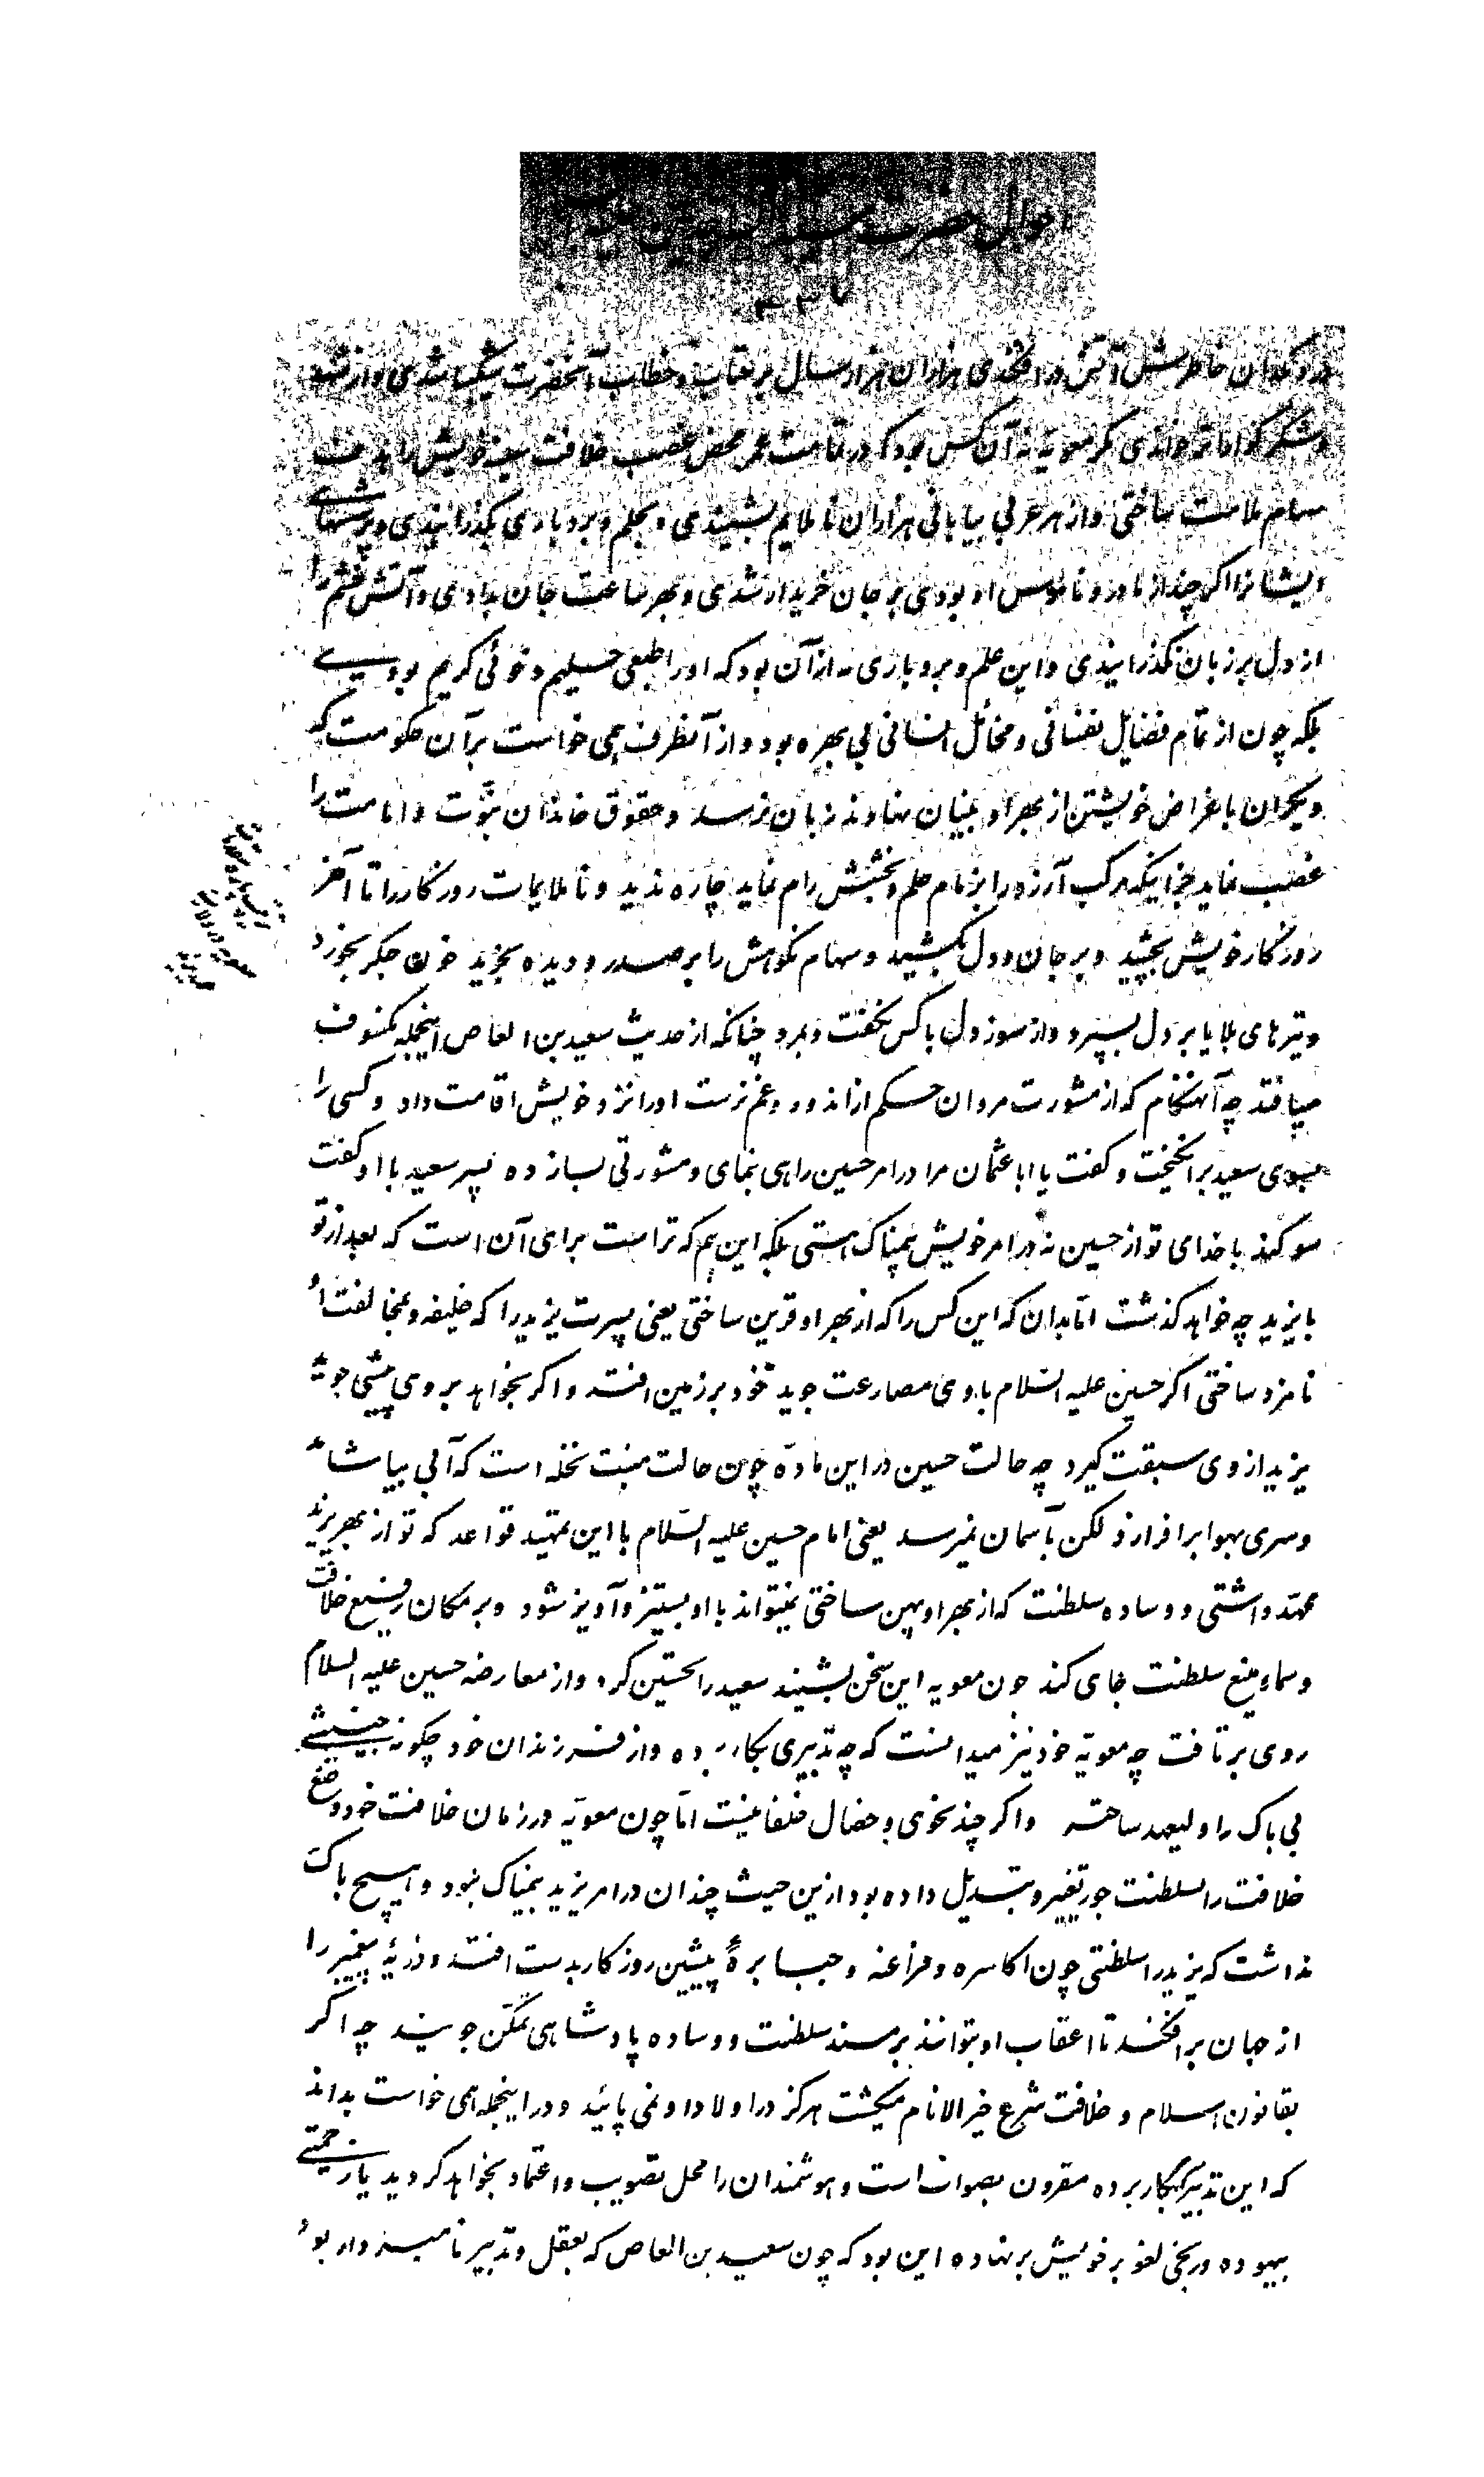 احوال حضرت سید الساجدین علیه
۳۳۷
در و کانون خاطرش آتش در افکندی هزاران هزار سال بر عتاب و خطاب آنحضرت شکیبا شدی و از شهد
و شکر گواراتر خواندی مگر معویه نه آن کس بود که در تمامت عمر محض غصب خلافت سینه خویش را هدف
سهام ملامت ساختی و از هر عربی بیابانی هزاران ناملایم بشنیدی و بحلم و بردباری بگذرانیدی و پرسشهای
ایشانرا اگر چند از نادر و ناموس او بودی بر جان خریدار شدی و بهر ساعت جان بدادی و آتش خشم را
از دل بر زبان نگذرانیدی و این حلم و بردباری نه از آن بود که او را طبعی حلیم و خوئی کریم بودی
بلکه چون از تمام فضایل نفسانی و مخائل انسانی بی بهره بود و از آنطرف همی خواست بر آن حکومت که
دیگران باغراض خویشتن از بهر او بنیان نهادند زیان نرسد و حقوق خاندان نبوّت و امامت را
غصب نماید جز اینکه مرکب آرزو را بزمام حلم و بخشش رام نماید چاره ندید و ناملایمات روزگار را تا آخر
روزگار خویش بچشید و بر جان و دل بکشید و سهام نکوهش را بر صدر و دیده بخرید خون جگر بخورد
و تیرهای بلایا بر دل بسپرد و از سوز دل با کس نگفت و بمرد چنانکه از حدیث سعید بن العاص اینجمله مکشوف
میافتد چه آنهنگام که از مشورت مروان حکم از اندوه و غم نرست او را نزد خویش اقامت داد و کسی را
بسوی سعید برانگیخت و گفت یا ابا عثمان مرا در امر حسین راهی بنمای و مشورتی بساز ده پسر سعید با او گفت
سوگند با خدای تو از حسین نه در امر خویش بیمناک هستی بلکه این بیم که تراست برای آن است که بعد از تو
با یزید چه خواهد گذشت امّا بدان که این کس را که از بهر او قرین ساختی یعنی پسرت یزید را که خلیفه و بمخالفت او
نامزد ساختی اگر حسین علیه السّلام با وی مصارعت جوید خود بر زمین افتد و اگر بخواهد بر وی پیشی جوید
یزید از وی سبقت گیرد چه حالت حسین در این مادّه چون حالت منبت نخله است که آبی بیاشامد
و سری بهوا برافرازد لکن بآسمان نمیرسد یعنی امام حسین علیه السّلام با این تمهید قواعد که تو از بهر یزید
ممهّد داشتی و وساده سلطنت که از بهر او پهن ساختی نمیتواند با او بستیز و آویز شود و بر مکان رفیع خلافت
و سماء منیع سلطنت جای کند چون معویه این سخن بشنید سعید را تحسین کرد و از معارضه حسین علیه السلام
روی برتافت چه معویّه خود نیز میدانست که چه تدبیری بکار برده و از فرزندان خود چگونه خبیثی
بی باک را ولیعهد ساخته و اگر چند بخوی و خصال خلفا نیست امّا چون معویّه در زمان خلافت خود وضع
خلافت را بسلطنت جور تغییر و تبدیل داده بود ازین حیث چندان در امر یزید بیمناک نبود و هیچ باک
نداشت که یزید را سلطنتی چون اکاسره و فراعنه و جبابرهٔ پیشین روزگار بدست افتد و ذریّهٔ پیغمبر را
از جهان برافکند تا اعقاب او بتوانند بر مسند سلطنت و وساده پادشاهی تمکّن جویند چه اگر
بقانون اسلام و خلافت شرع خیر الانام میگشت هرگز در اولاد او نمی پائید و در اینجمله همی خواست بداند
که این تدبیر که بکار برده مقرون بصواب است و هوشمندان را محل تصویب و اعتماد بخواهد گردید یا زحمتی
بیهوده و رنجی لغو بر خویش برنهاده این بود که چون سعید بن العاص که بعقل و تدبیر نامبردار بود